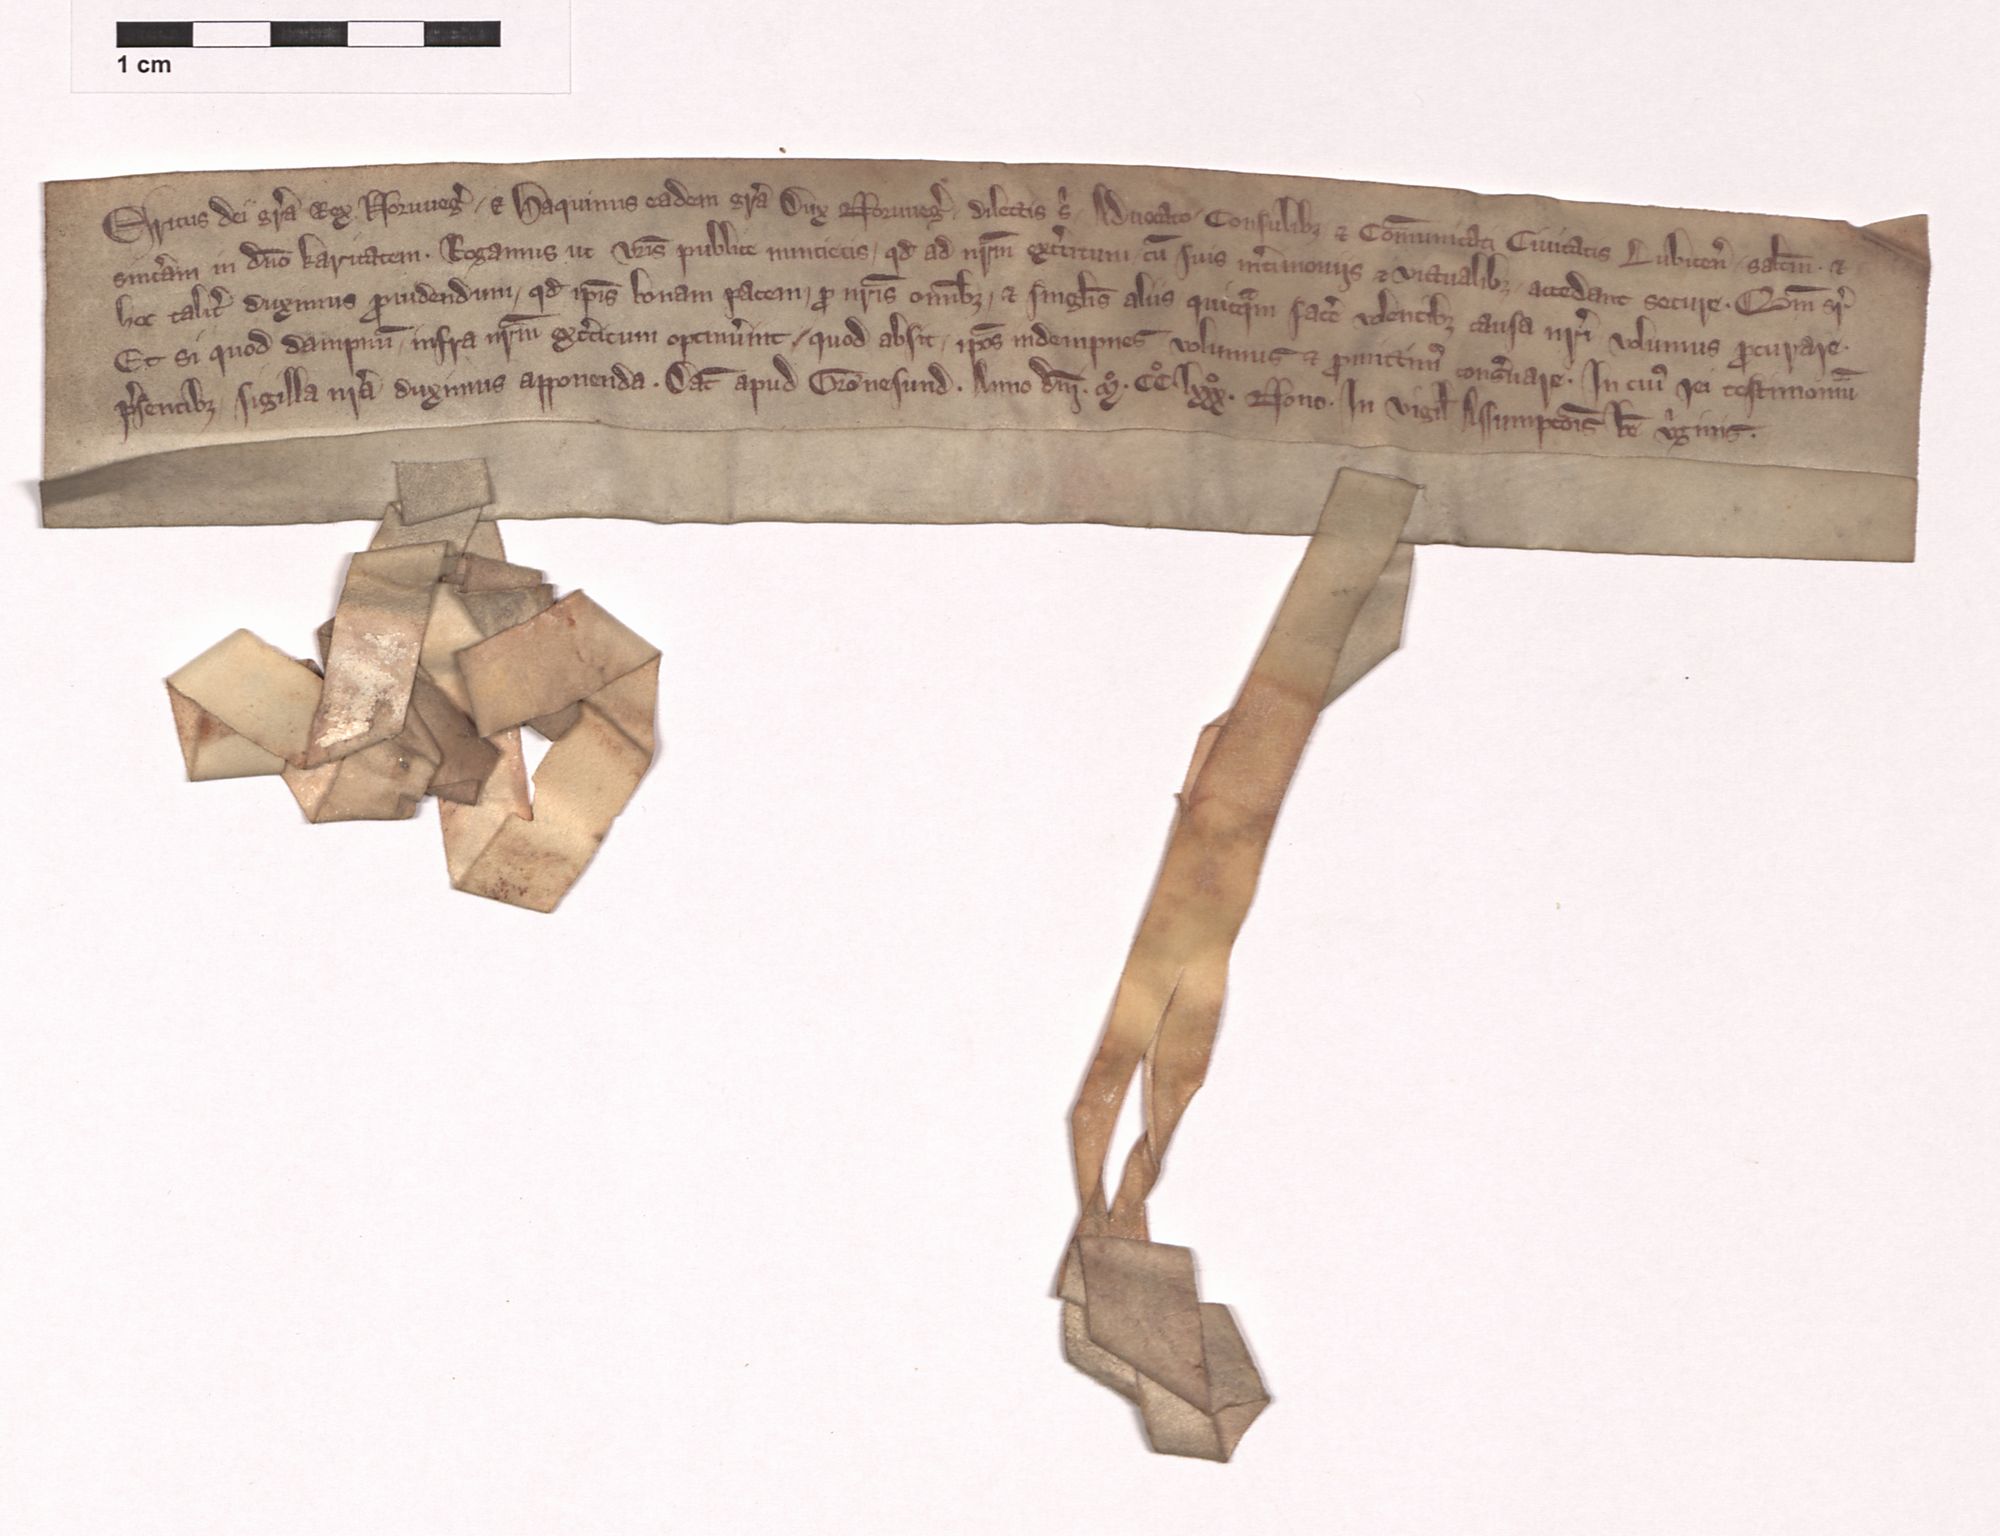 1 cm
Ericus dei gr̄a Rex Norwegꝰ / & Haquinus eadem gr̄a Dux Norwegꝰ / dilectis s̄ / Aduocato / Consulibꝫ & Com̄unitati Ciuitatis Lubicen̄ / salt̄m · &
sinc̄am in dn̄o karitatem · Rogamus ut vr̄is publice nuncietis / qd̄ ad nr̄m exc̄itum / cū suis m̄cimonijs & victualibꝫ / accedant secure · Qm̄ sr̄
hoc talit̄ duximus ꝓuidendum / qd̄ ip̄is bonam pacem / ꝓ nr̄is om̄ibꝫ / & sinḡlis aliis quicq̄m fac̄e volentibꝫ causa nr̄i volumus ꝓcurare ·
Et si quod dampnū / infra nr̄m exc̄itum optinūint / quod absit / ip̄os indempnes volumus & ꝓmittim⁹ cons̄uare · In cui⁹ rei testimoniū
p̄sentibꝫ / sigilla nr̄a duximus apponenda · Dat̄ apud Grȫnesund · Anno dn̄i · M̊ · CC̊ lxxx̊ · Nono · In vigil̄ Assumpc̄ōis b̄e v̄ginis ·